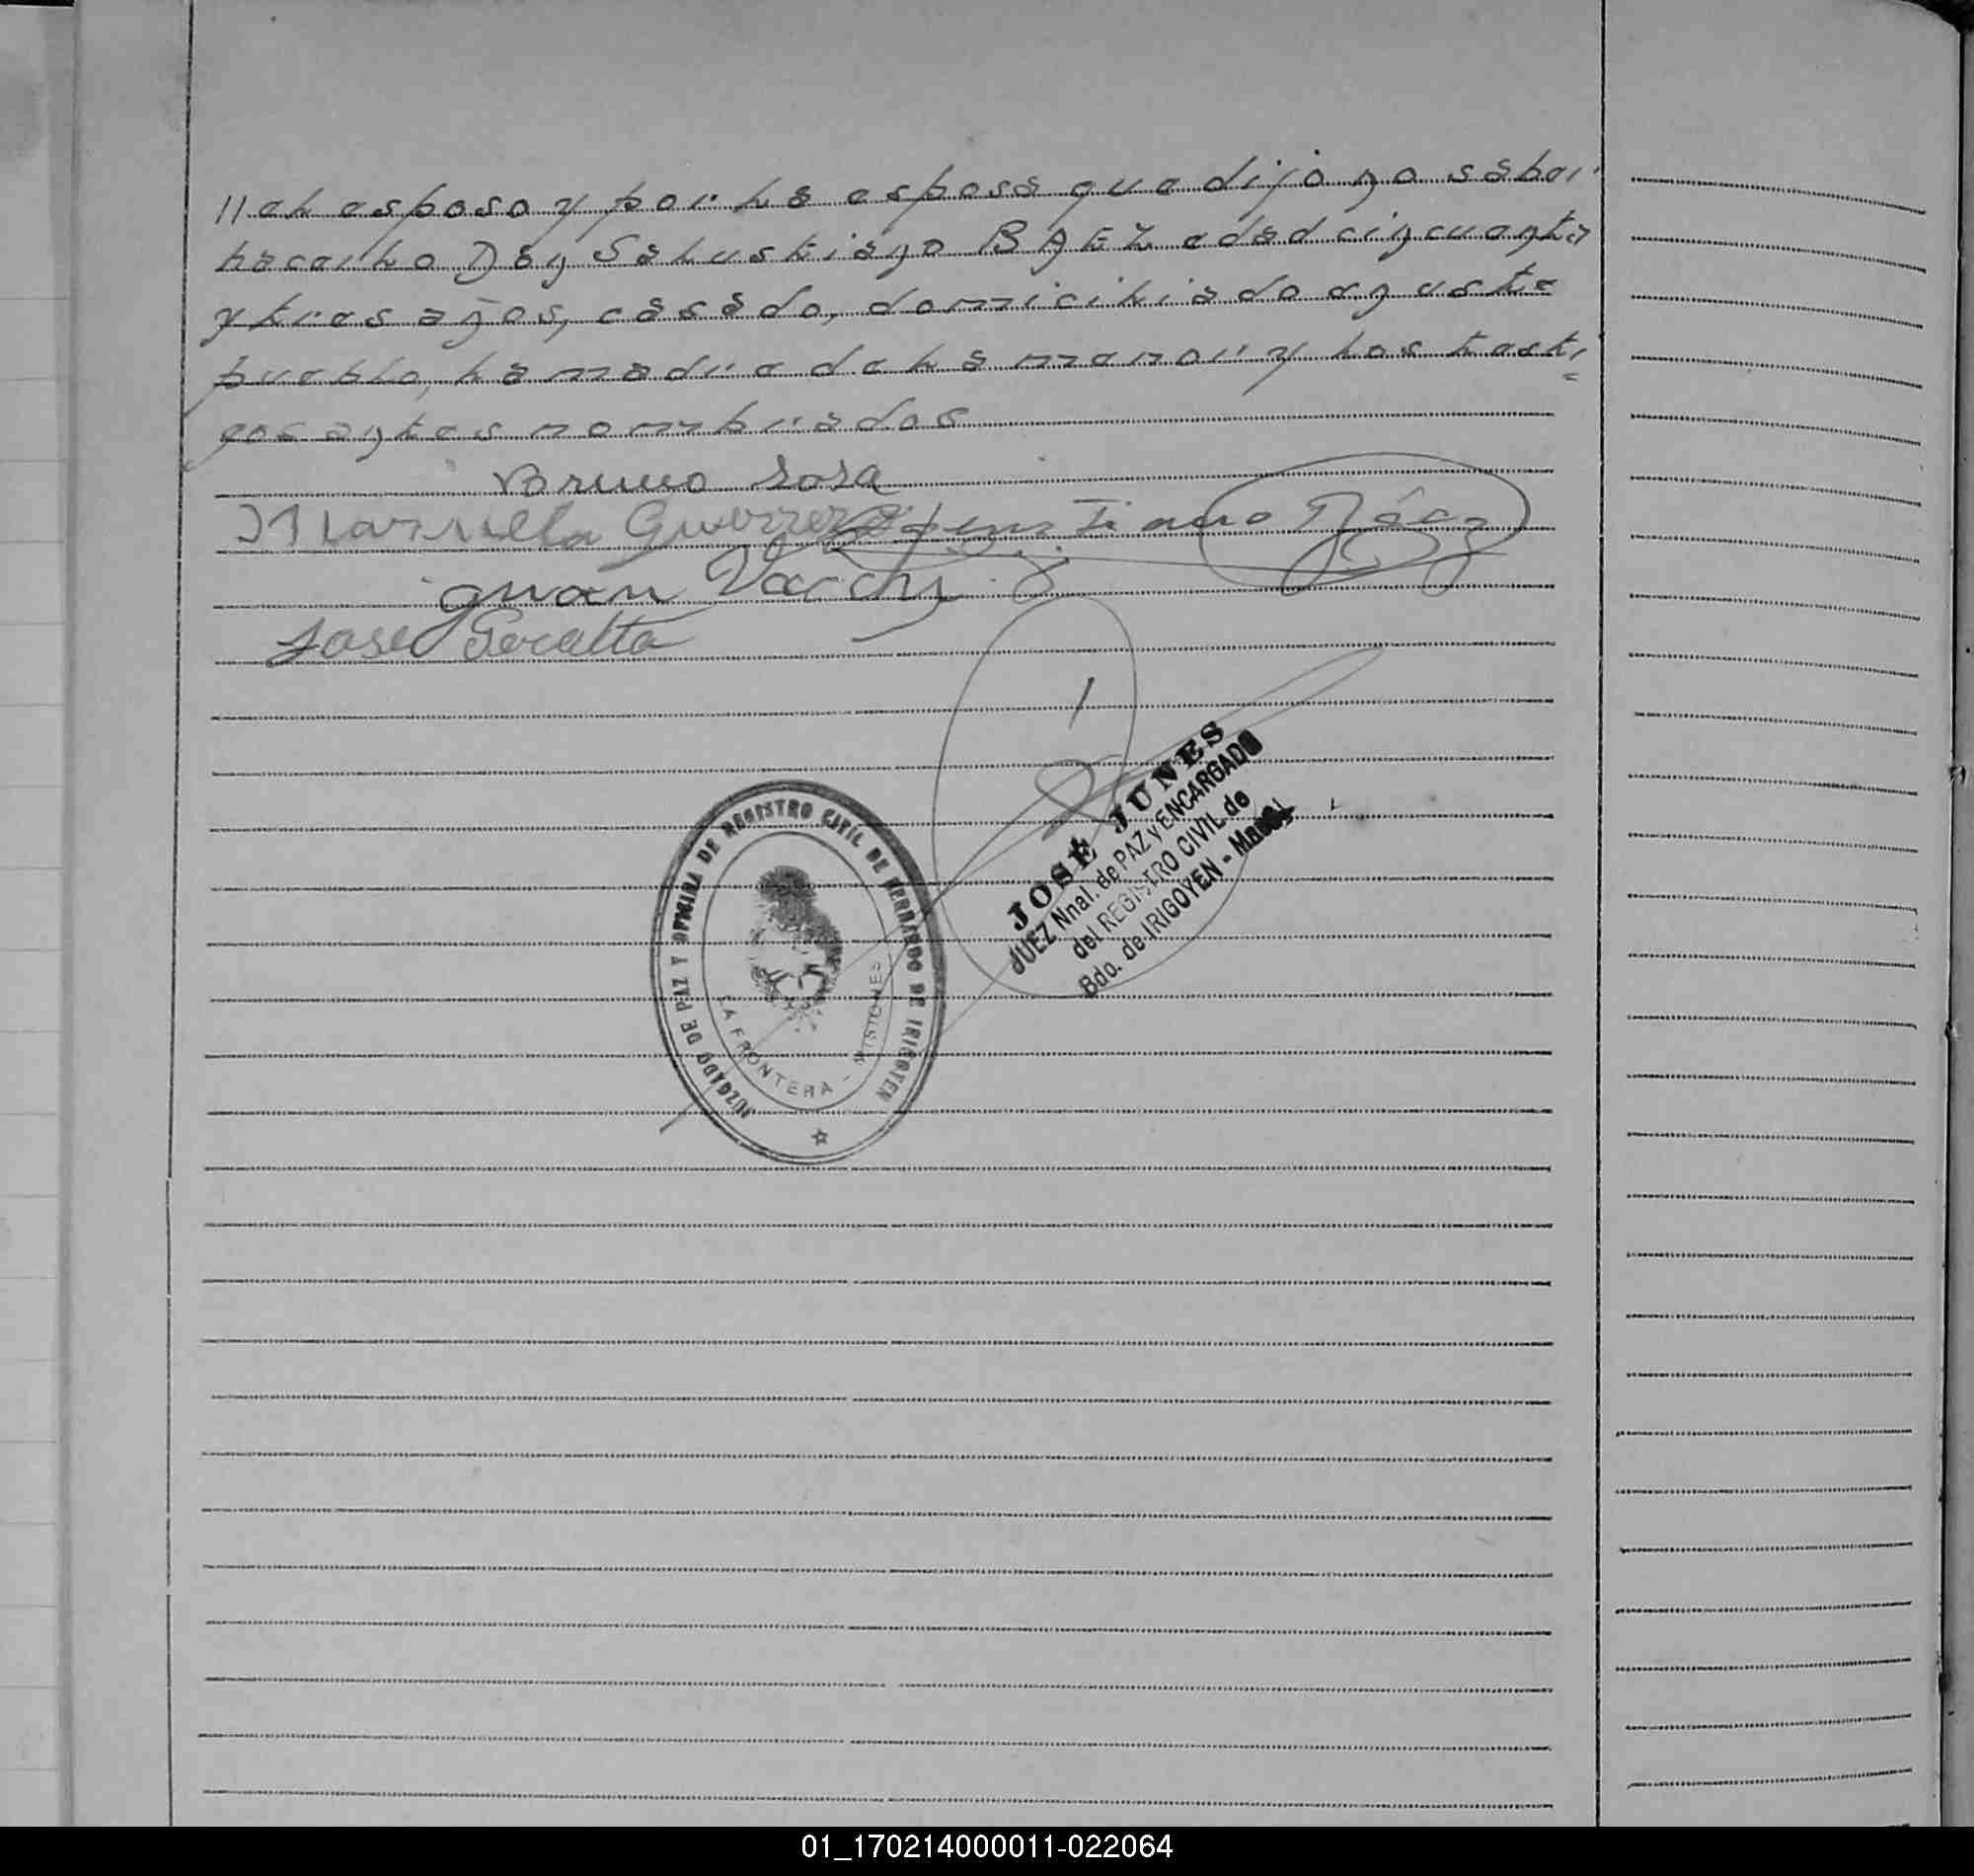 // el esposo y por la esposa que dijo no saber
hacerlo Don Salustiano BAEZ edad cincuenta
y tres años, casado, domiciliado en este
pueblo, la madre de la menor y los testi=
gos antes nombrados
Bruno Sosa
Guerrero Báez
Juan
José Peralta
JOSÉ JUNES
JUEZ Nnal. de PAZ y ENCARGADO
del REGISTRO CIVIL de
Bdo. de IRIGOYEN - Mnes.
JUZGADO DE PAZ Y OFICINA DE REGISTRO CIVIL DE BERNARDO DE IRIGOYEN
LA FRONTERA - MISIONES
01_170214000011-022064